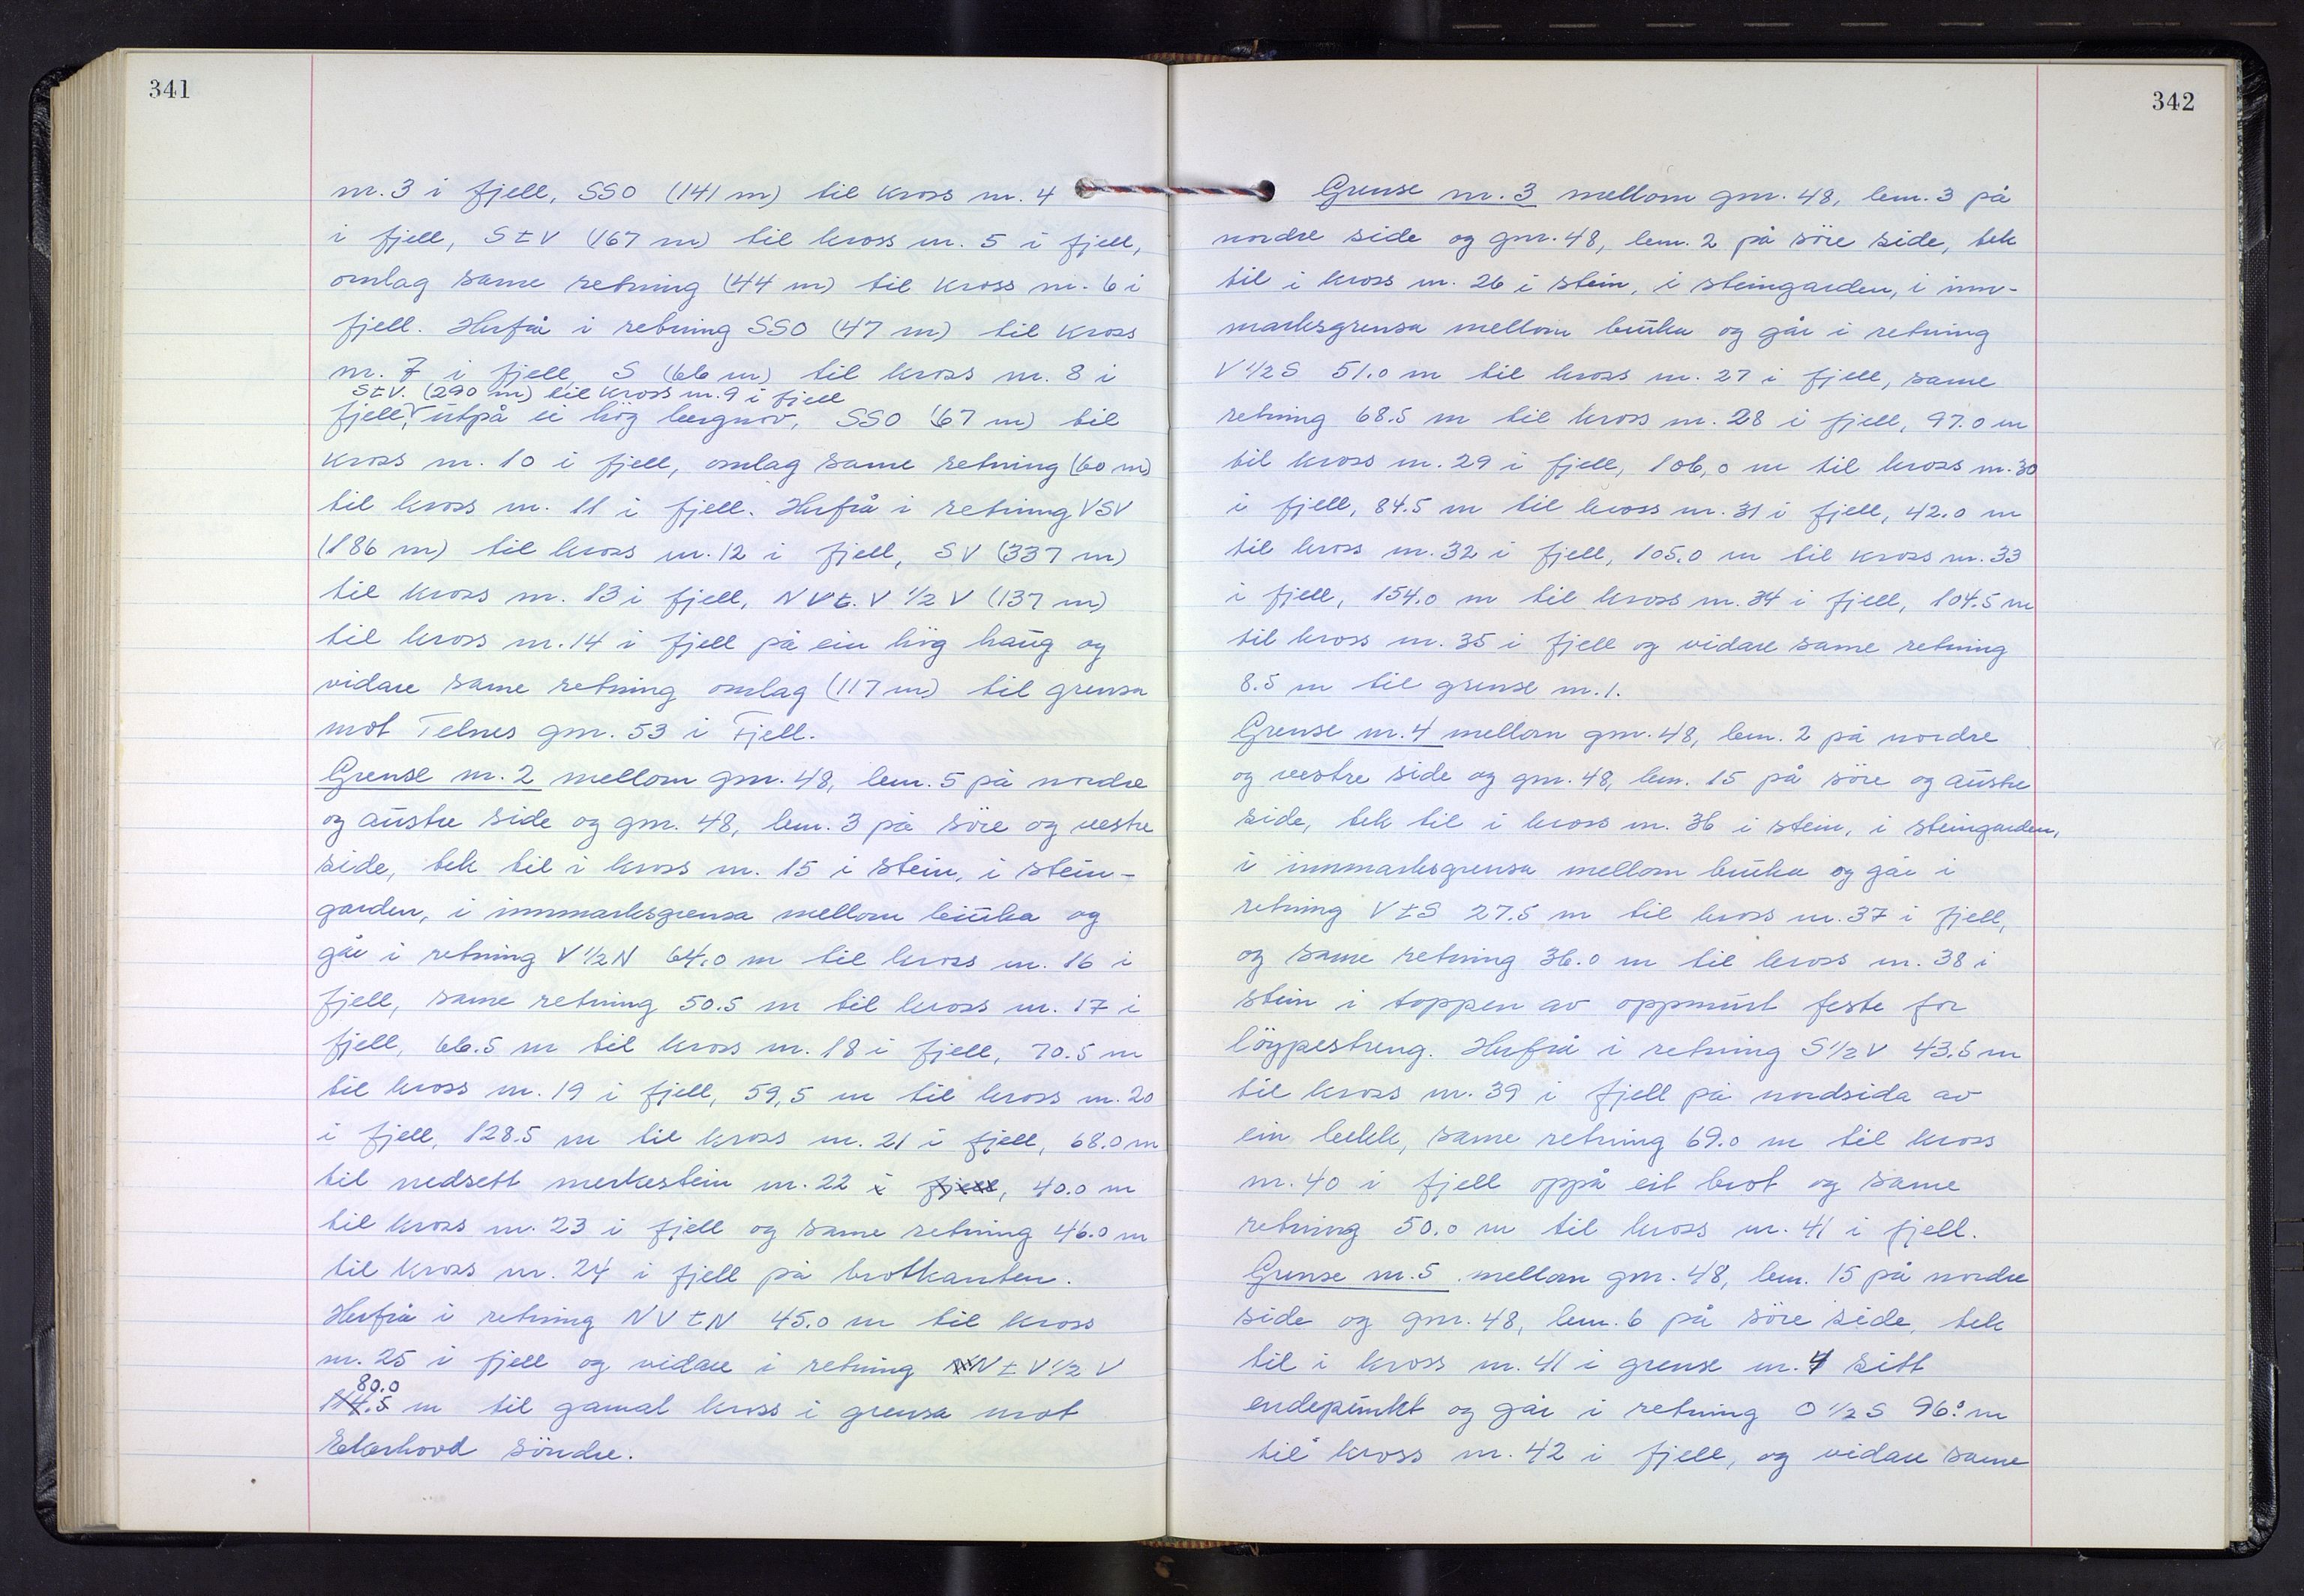 341
nr. 3 i fjell, SSO (141 m) til kross nr. 4
i fjell, StV (167 m) til kross nr. 5 i fjell,
omlag same retning (44 m) til kross nr. 6 i
fjell. Herfrå i retning SSO (47 m) til kross
nr. 7 i fjell S (66 m) til kross nr. 8 i
StV. (290 m) til kross nr. 9 i fjell
fjell, utpå ei hög bergnov, SSO (67 m) til
kross nr. 10 i fjell, omlag same retning (60 m)
til kross nr. 11 i fjell. Herfrå i retning VSV
(186 m) til kross nr. 12 i fjell, SV (337 m)
til kross nr. 13 i fjell, NVt. V 1/2 V (137 m)
til kross nr. 14 i fjell på ein hög haug og
vidare same retning omlag (117 m) til grensa
mot Telnes gnr. 53 i Fjell.
Grense nr. 2 mellom gnr. 48, bnr. 5 på nordre
og austre side og gnr. 48, bnr. 3 på söre og vestre
side, tek til i kross nr. 15 i stein, i stein-
garden, i innmarksgrensa mellom bruka og
går i retning V 1/2 N 64.0 m til kross nr. 16 i
fjell, same retning 50.5 m til kross nr. 17 i
fjell, 66.5 m til kross nr. 18 i fjell, 70.5 m
til kross nr. 19 i fjell, 59,5 m til kross nr. 20
i fjell, 128.5 m til kross nr. 21 i fjell, 68.0 m
til nedsett merkestein nr. 22 i fjell, 40.0 m
til kross nr. 23 i fjell og same retning 46.0 m
til kross nr. 24 i fjell på brotkanten.
Herfrå i retning NVtN 45.0 m til kross
nr. 25 i fjell og vidare i retning NVtV 1/2 V
80.0
m til gamal kross i grensa mot
Ekerhovd söndre.
342
Grense nr. 3 mellom gnr. 48, bnr. 3 på
nordre side og gnr. 48, bnr. 2 på söre side, tek
til i kross nr. 26 i stein, i steingarden, i inn-
marksgrensa mellom bruka og går i retning
V 1/2 S 51.0 m til kross nr. 27 i fjell, same
retning 68.5 m til kross nr. 28 i fjell, 97.0 m
til kross nr. 29 i fjell, 106,0 m til kross nr. 30
i fjell, 84.5 m til kross nr. 31 i fjell, 42.0 m
til kross nr. 32 i fjell, 105.0 m til kross nr. 33
i fjell, 154.0 m til kross nr. 34 i fjell, 104.5 m
til kross nr. 35 i fjell og vidare same retning
8.5 m til grense nr. 1.
Grense nr. 4 mellom gnr. 48, bnr. 2 på nordre
og vestre side og gnr. 48, bnr. 15 på söre og austre
side, tek til i kross nr. 36 i stein, i steingarden,
i innmarksgrensa mellom bruka og går i
retning VtS 27.5 m til kross nr. 37 i fjell,
og same retning 36.0 m til kross nr. 38 i
stein i toppen av oppmurt feste for
löypestreng. Herfrå i retning S 1/2 V 43.5 m
til kross nr. 39 i fjell på nordsida av
ein bekk, same retning 69.0 m til kross
nr. 40 i fjell oppå eit brot og same
retning 50.0 m til kross nr. 41 i fjell.
Grense nr. 5 mellom gnr. 48, bnr. 15 på nordre
side og gnr. 48, bnr. 6 på söre side, tek
til i kross nr. 41 i grense nr. 4 sitt
endepunkt og går i retning O 1/2 S 96.0 m
til kross nr. 42 i fjell, og vidare same